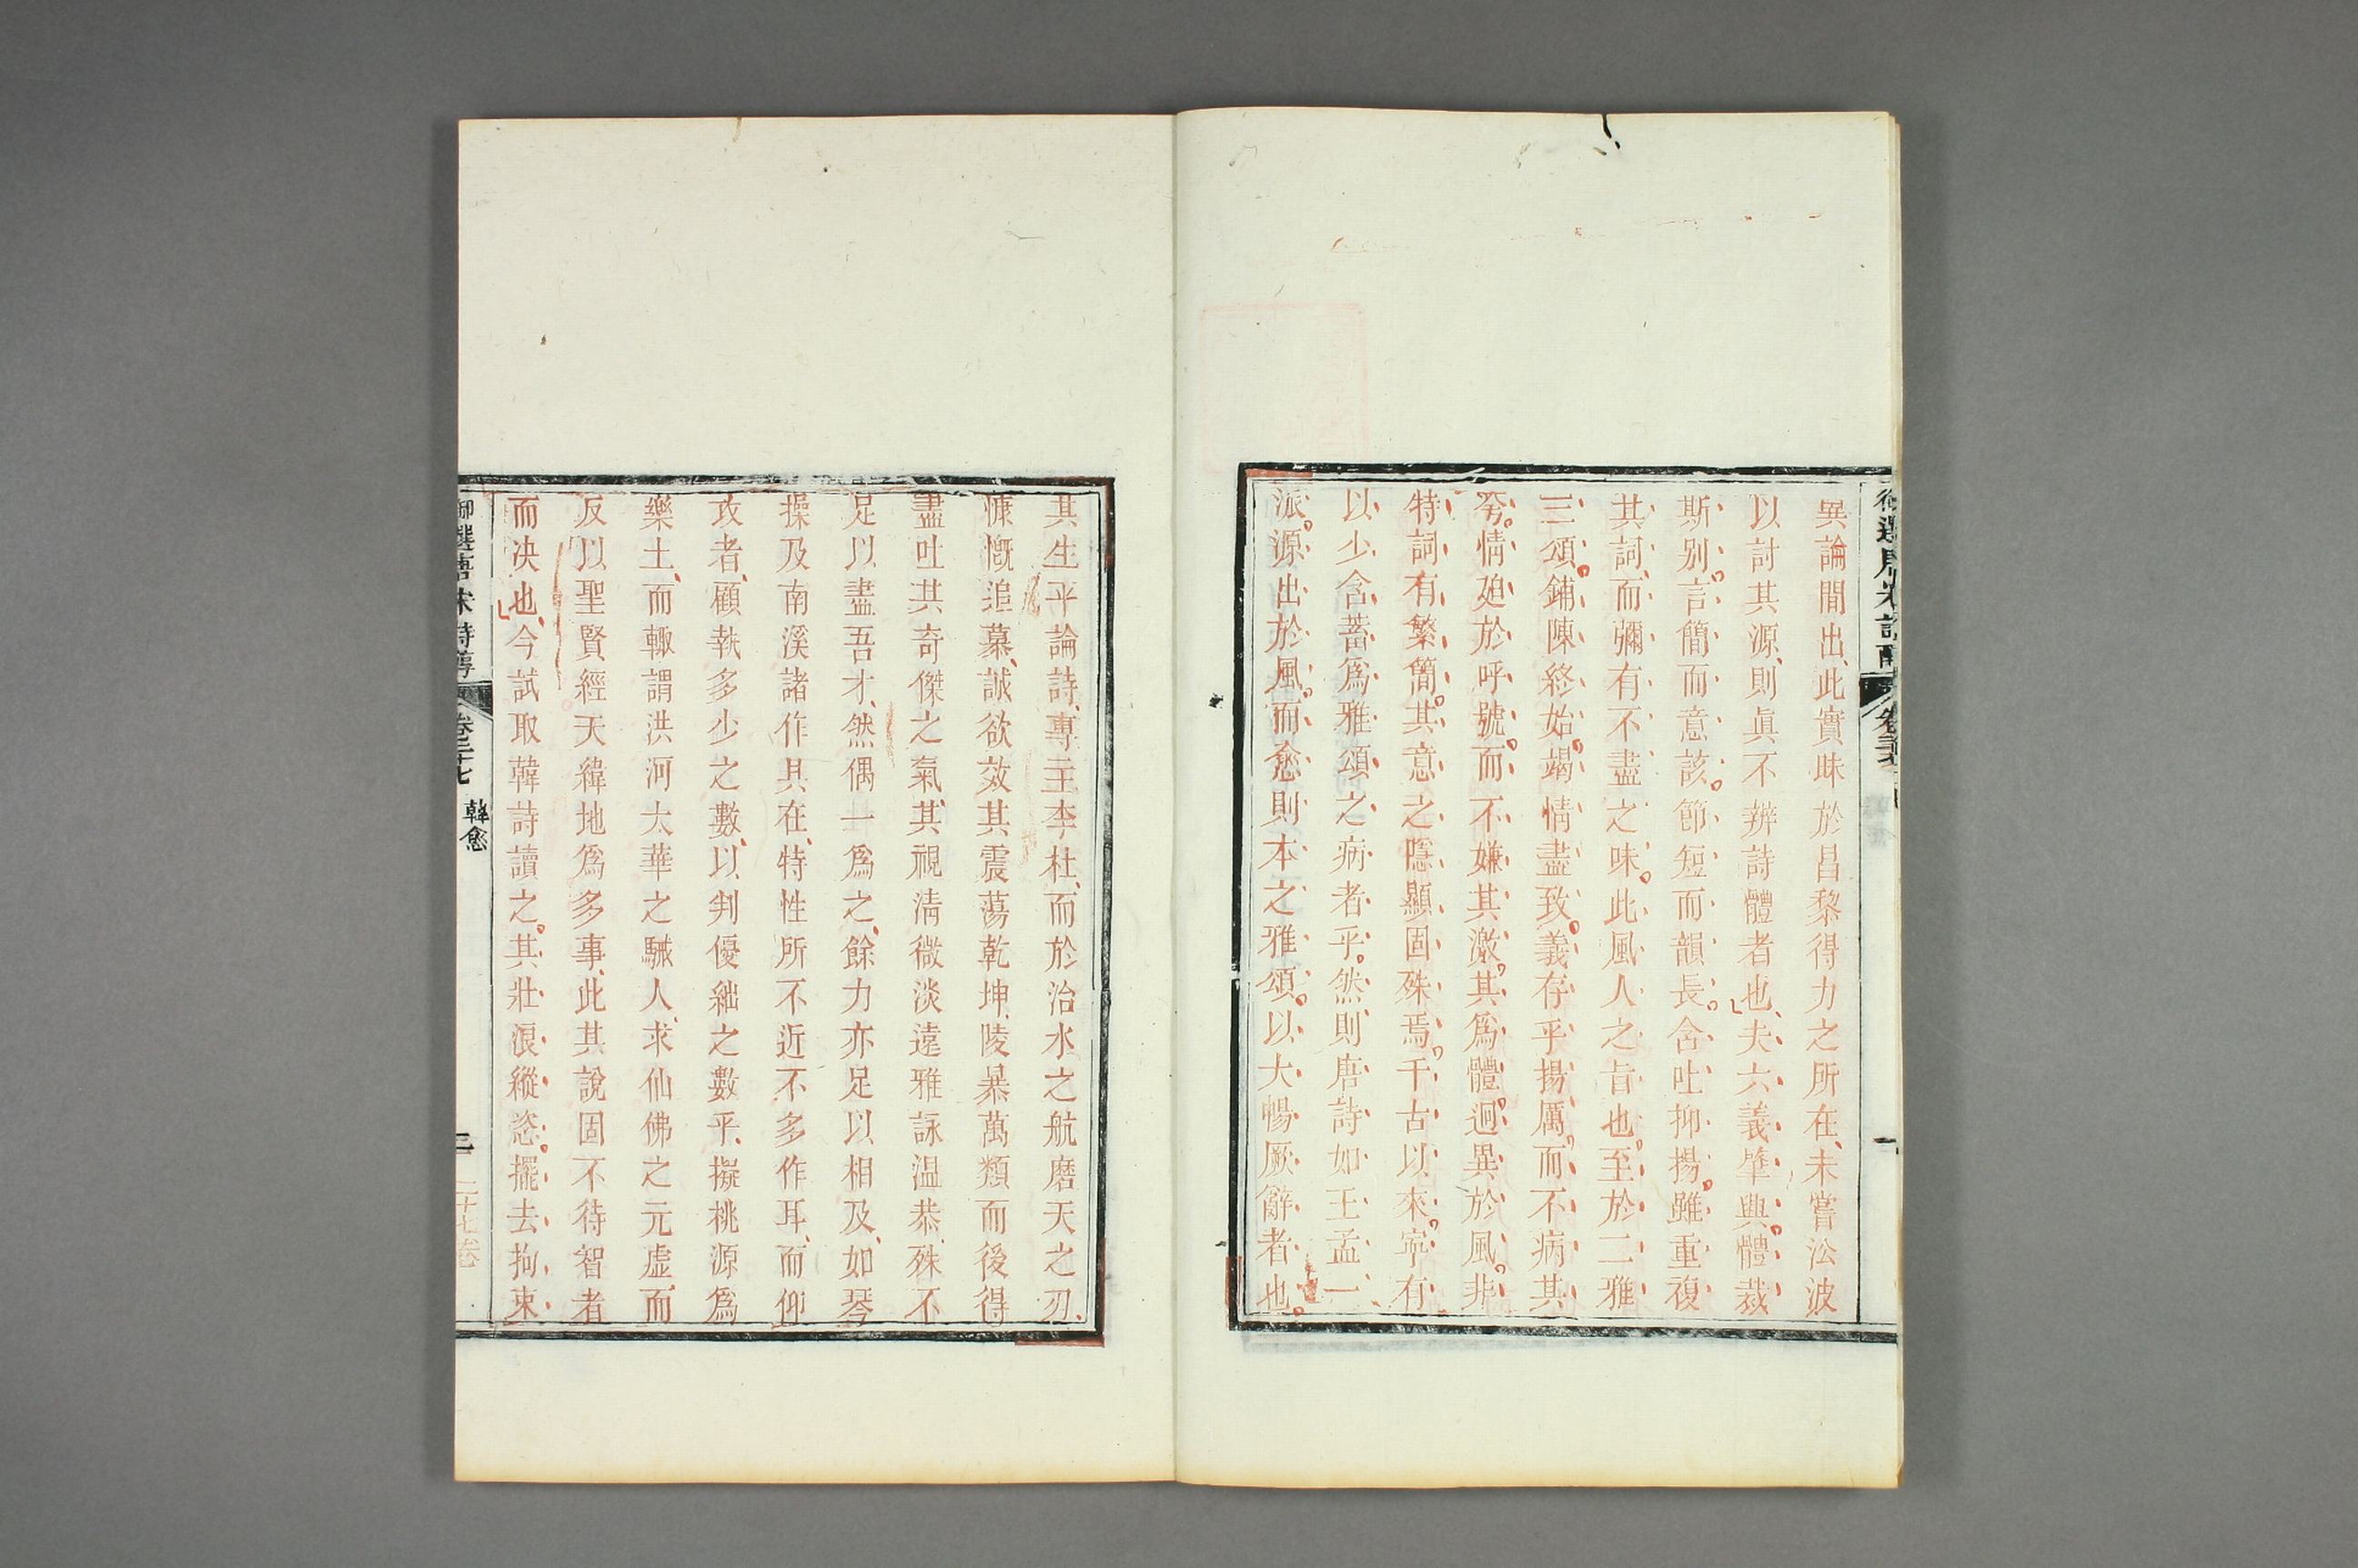 異論間出此實昧於昌黎得力之所在未嘗沿波
以討其源則眞不辨詩體者也夫六義肇興體裁
斯別言簡而意該節短而韻長含吐抑揚雖重複
其詞而彌有不盡之味此風人之旨也至於二雅
三頌鋪陳終始竭情盡致義存乎揚厲而不病其
夸情廹於呼號而不嫌其激其爲體迥異於風非
特詞有繁簡其意之隱顯固殊焉千古以來寜有
以少含蓄爲雅頌之病者乎然則唐詩如王孟一
派源出於風而愈則本之雅頌以大暢厥辭者也
其生平論詩專主李杜而於治水之航磨天之刃
慷慨追慕誠欲效其震蕩乾坤陵暴萬類而後得
盡吐其奇傑之氣其視清微淡遠雅詠温恭殊不
足以盡吾才然偶一爲之餘力亦足以相及如琴
操及南溪諸作具在特性所不近不多作耳而仰
攻者顧執多少之數以判優絀之數乎擬桃源爲
樂土而輙謂洪河太華之駴人求仙佛之元虛而
反以聖賢經天緯地爲多事此其說固不待智者
而决也今試取韓詩讀之其壯浪縱恣擺去拘束
御選唐宋詩醇
卷二十七
韓愈
三
二十七卷